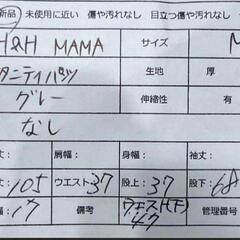 新品 未使用に近い 傷や汚れなし 目立つ傷や汚れなし
H&M MAMA サイズ M
タニティパンツ 生地 厚
グレー 伸縮性 有
なし
丈： 肩幅： 身幅： 袖丈：
丈：105 ウエスト37 股上：37 股下：68
幅：17 備考 ウエスト(下)47 管理番号